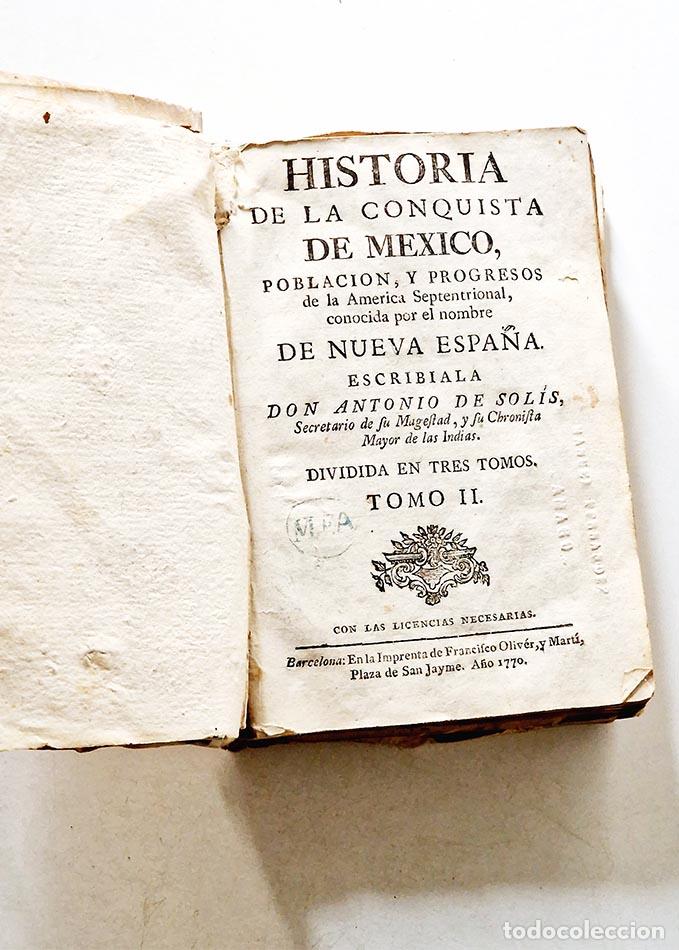 HISTORIA
DE LA CONQUISTA
DE MEXICO,
POBLACION, Y PROGRESOS
de la America Septentrional,
conocida por el nombre
DE NUEVA ESPAÑA.
ESCRIBIALA
DON ANTONIO DE SOLÍS,
Secretario de ſu Mageſtad, y ſu Chroniſta
Mayor de las Indias.
DIVIDIDA EN TRES TOMOS.
TOMO II.
CON LAS LICENCIAS NECESARIAS.
Barcelona: En la Imprenta de Franciſco Olivér, y Martí,
Plaza de San Jayme. Año 1770.
todocoleccion